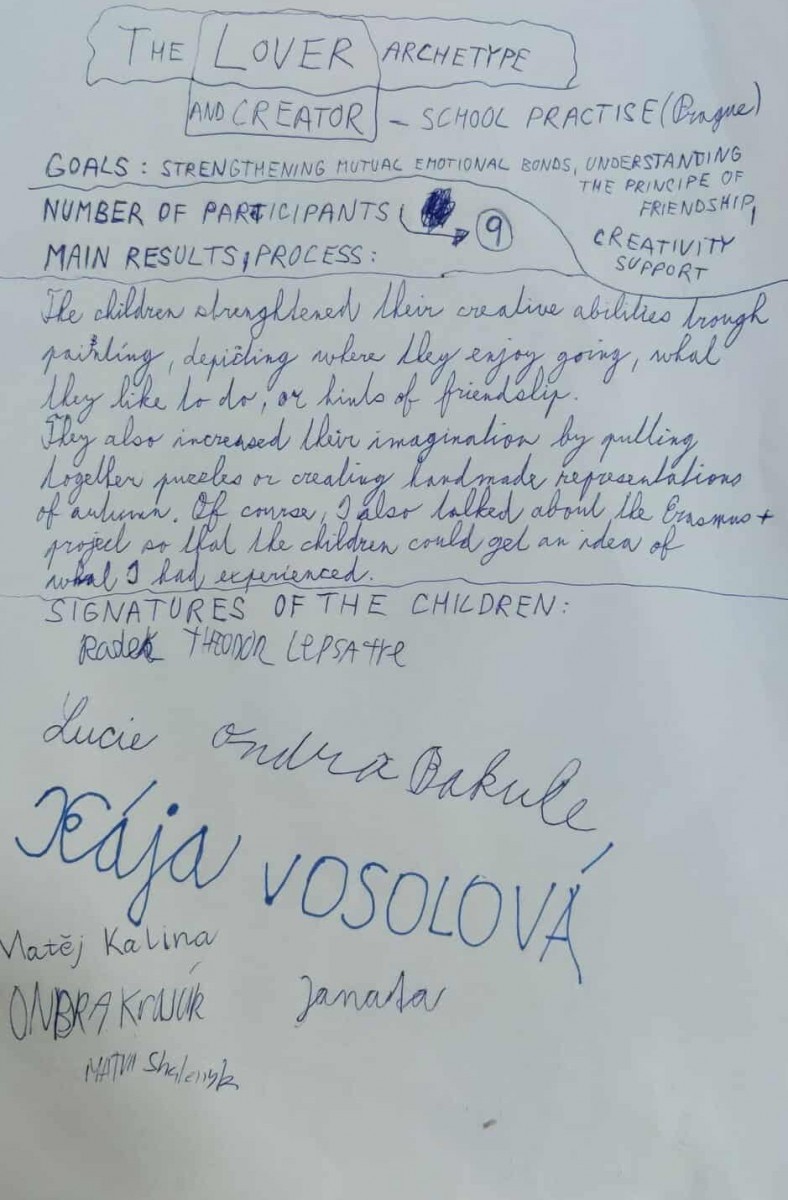 THE LOVER ARCHETYPE
AND CREATOR - SCHOOL PRACTISE (Prague)
GOALS: STRENGTHENING MUTUAL EMOTIONAL BONDS, UNDERSTANDING
THE PRINCIPE OF
FRIENDSHIP,
CREATIVITY
SUPPORT
NUMBER OF PARTICIPANTS 9
MAIN RESULTS, PROCESS:
The children strenghtened their creative abilities trough
painting, depicting where they enjoy going, what
they like to do, or hints of friendship.
They also increased their imagination by putting
together puzzles or creating handmade representations
of autumn. Of course, I also talked about the Erasmus+
project so that the children could get an idea of
what I had experienced.
SIGNATURES OF THE CHILDREN:
Radek THEODOR
Lucie Ondra Bakule
Kája VOSOLOVÁ
Matěj Kalina
ONDRA
MATVII